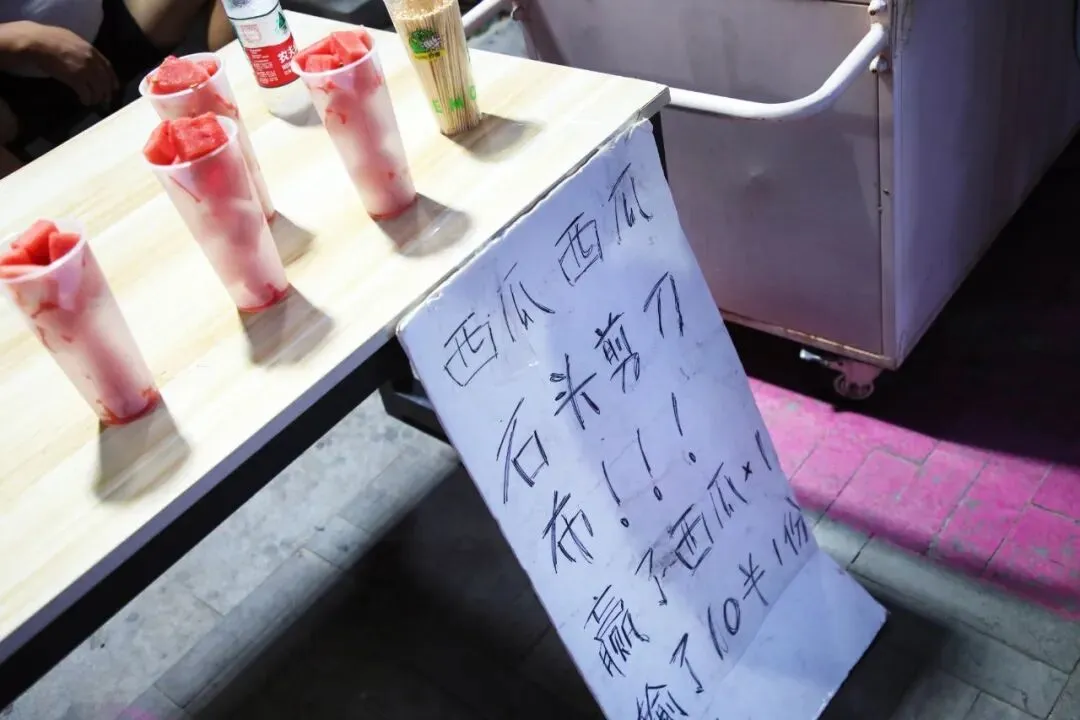 西瓜西瓜
石头剪刀
布!!!
赢了西瓜×1
输了10¥1份
农夫